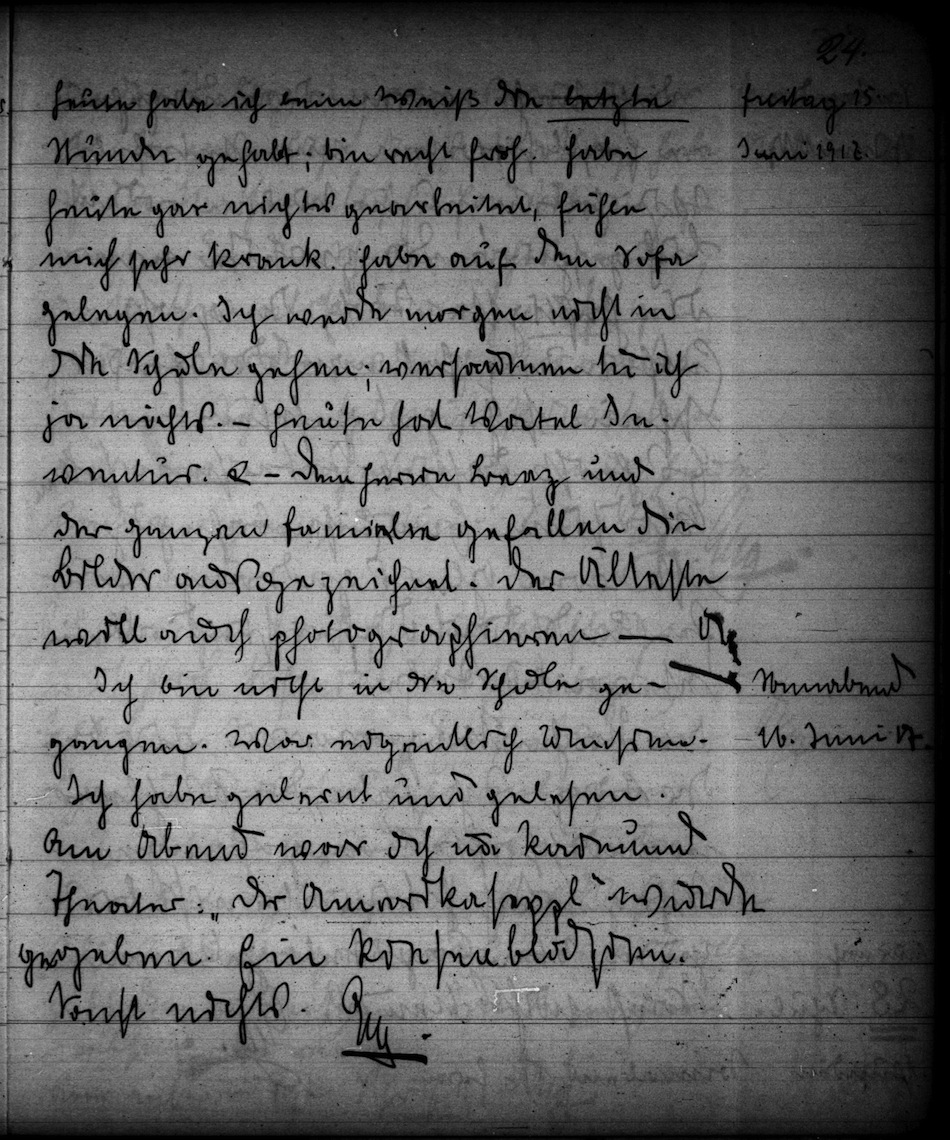 24.
Heute habe ich beim Weiß die letzte
Freitag 15.
Stunde gehabt; bin recht froh. Habe
Juni 1917.
heute gar nichts gearbeitet, fühle
mich sehr krank. Habe auf dem Sofa
gelegen. Ich werde morgen nicht in
die Schule gehen; versäumen tu ich
ja nichts. – Heute hat Vatel In-
ventur. – Dem Herrn und
der ganzen Familie gefallen die
Bilder ausgezeichnet. Der Älteste
will auch photographieren —
Ich bin nicht in die Schule ge-
Sonnabend
gangen. War eigentlich
16. Juni 17.
Ich habe gelernt und gelesen.
Am Abend war ich im
Theater: „Der Amerikaseppl“ wurde
gegeben. Ein Riesenblödsinn.
Sonst nichts.